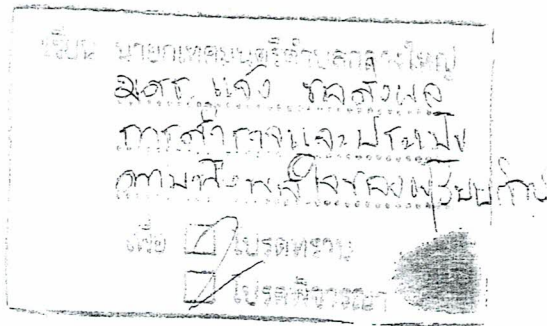 เรียน นายกเทศมนตรีตำบลกลางใหญ่
มสธ. แจ้ง ขอส่งผล
การสำรวจและประเมิน
ความพึงพอใจของผู้รับบริการ
เพื่อ โปรดทราบ
โปรดพิจารณา